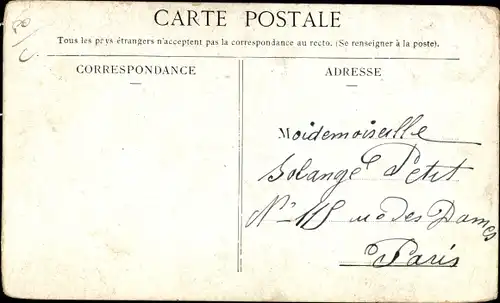 CARTE POSTALE
Tous les pays étrangers n'acceptent pas la correspondance au recto. (Se renseigner à la poste).
CORRESPONDANCE
ADRESSE
Moidemoiselle
Solange Petit
N° 115 rue des Dames
Paris